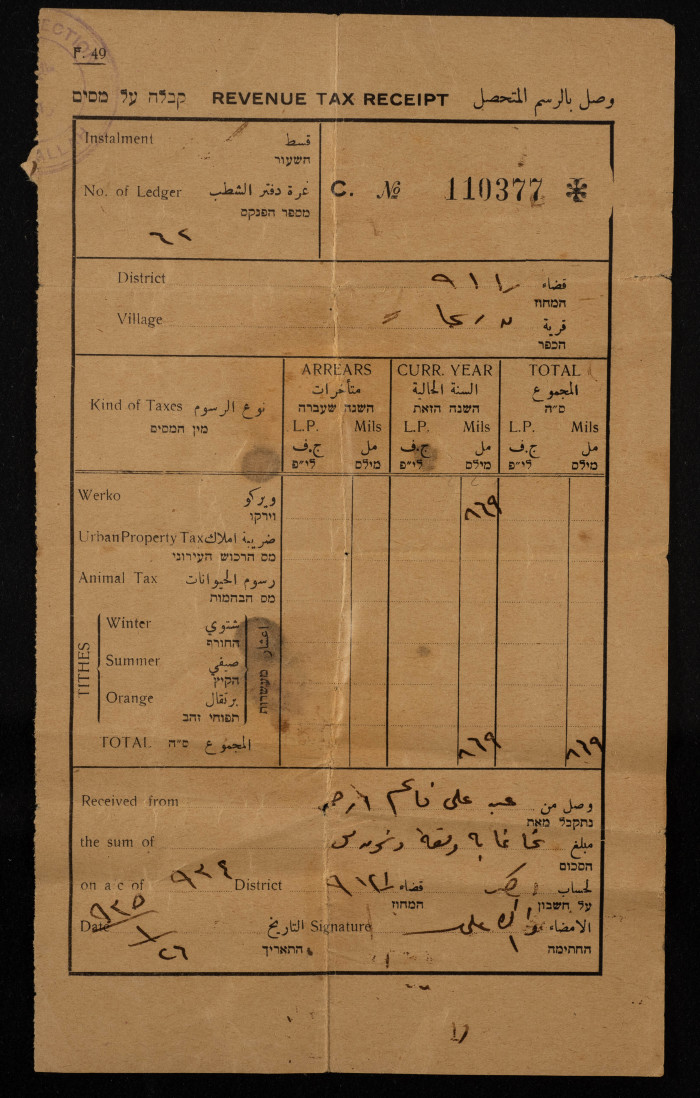 F. 49
קבלה על מסים REVENUE TAX RECEIPT وصل بالرسم المتحصل
Instalment قسط
השעור
No. of Ledger نمرة دفتر الشطب
מספר הפנקס
٦٢
C. № 110377
District قضاء
המחוז
Village قرية
הכפר
Kind of Taxes نوع الرسوم
מין המסים
ARREARS CURR. YEAR TOTAL
متأخرات السنة الحالية المجموع
השנה שעברה השנה הזאת ס״ה
L.P. Mils L.P. Mils L.P. Mils
ج.ف مل ج.ف مل ج.ف مل
לי״פ מילס לי״פ מילס לי״פ מילס
Werko ويركو
וירקו
٨٦٩
Urban Property Tax ضريبة املاك
מס הרכוש העירוני
Animal Tax رسوم الحيوانات
מס הבהמות
TITHES اعشار מעשרות
Winter شتوي
החורף
Summer صيفي
הקיץ
Orange برتقال
תפוחי זהב
TOTAL ס״ה المجموع ٨٦٩ ٨٦٩
Received from على وصل من
נתקבל מאת
the sum of مبلغ
הסכום
on a/c of ٩٣٤ District قضاء لحساب
המחוז על חשבון
Date ٩٣٥ / ١ / ٢٦ التاريخ Signature على الامضاء
התאריך החתימה